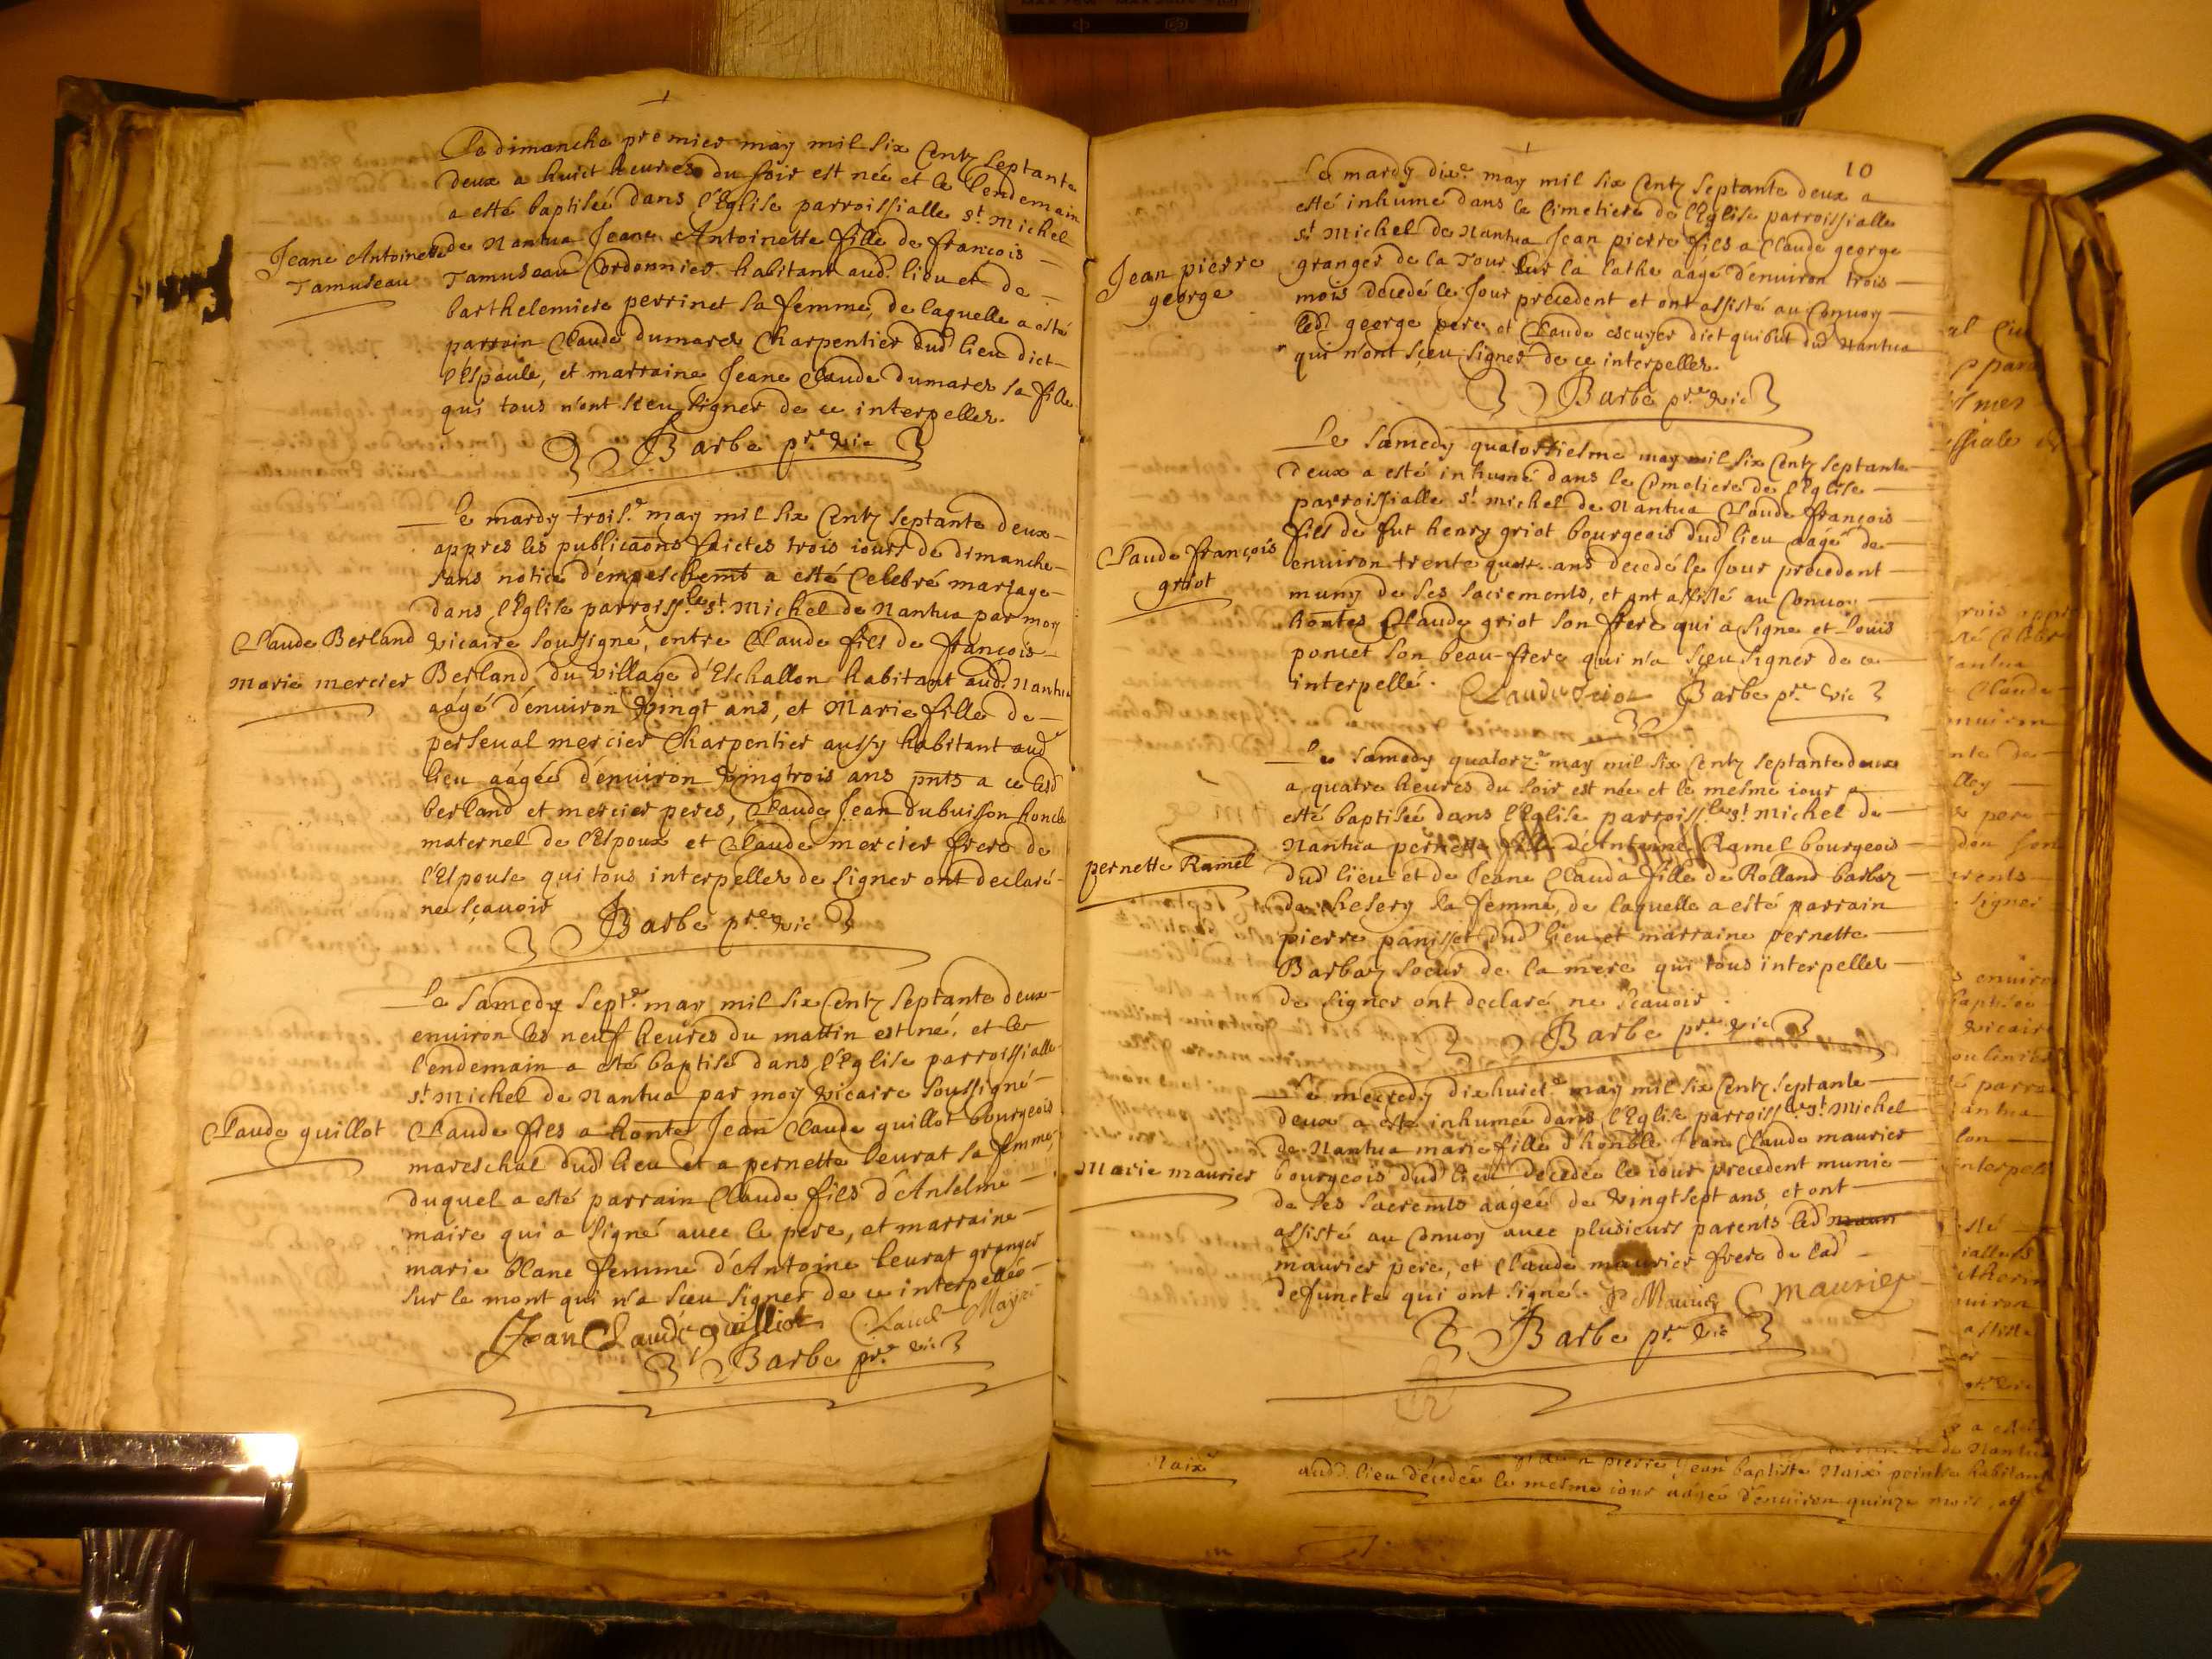 Le dimanche premier may mil six Centz septante
deux a huict heures du soir est née et le lendemain
a esté baptisée dans l'Eglise parroissialle st Michel
Jeane Antoinette
Tamuseau
de Nantua Jeane Antoinette fille de françois
Tamuseau Cordonnier habitant aud. lieu et de
barthelemiere perrinet sa femme, de laquelle a esté
parrain Claude dumarest Charpentier dud lieu dict
l'Espaule, et marraine Jeane Claude dumarest sa fille
qui tous n'ont sceu signer de ce interpelles.
Barbe pre vic
Le mardy trois.e may mil six Centz septante deux
appres les publicaons faictes trois iours de dimanche
sans notice d'empeschemt a esté Celebré mariage
dans l'Eglise parroiss.le st Michel de Nantua par moy
Claude Berland
Marie mercier
vicaire soussigné, entre Claude fils de françois
Berland du village d'Eschallon habitant aud. Nantua
aâgé d'enuiron vingt ans, et Marie fille de
perseual mercier Charpentier aussy habitant aud
lieu aâgée d'enuiron vingtrois ans pnts a ce lesd
berland et mercier peres, Claude Jean dubuisson honcle
maternel de l'Espoux et Claude mercier frere de
l'Espouse qui tous interpelles de signer ont declaré
ne sçauoir Barbe pre vic
Le samedy sept.e may mil six Centz septante deux
enuiron les neuf heures du mattin est né, et le
lendemain a esté baptisé dans l'Eglise parroissialle
st Michel de Nantua par moy vicaire soussigné
Claude guillot
Claude fils a honte Jean Claude guillot bourgeois
mareschal dud lieu et a pernette leurat sa femme,
duquel a esté parrain Claude fils d'Anselme
maire qui a signé auec le pere, et marraine
marie blanc femme d'Antoine leurat granger
sur le mont qui n'a sceu signer de ce interpellée
Jean Claude guilliot Claude Mayre
Barbe pre vic
10
Le mardy dix.e may mil six Centz septante deux a
esté inhumé dans le Cimetiere de l'Eglise parroissialle
st Michel de Nantua Jean pierre fils a Claude george
Jean pierre
george
granger de la Tour sur la lathe aâgé d'enuiron trois
mois decedé le Jour precedent et ont assisté au Conuoy
led george pere, et Claude escuyer dict quibut dud Nantua
qui n'ont sçeu signer de ce interpelles.
Barbe pre vic
Le samedy quatorziesme may mil six Centz septante
deux a esté inhumé dans le Cimetiere de l'Eglise
parroissialle st michel de Nantua Claude françois
Claude françois
griot
fils de fut henry griot bourgeois dud lieu aagé de
enuiron trente quatr ans decedé le Jour precedent
muny de ses sacrements, et ont assisté au Conuoy
hontes Claude griot son frere qui a signé et Louis
poncet son beau-frere qui n'a sçeu signer de ce
interpellé. Claude Griot Barbe pre vic
Le samedy quatorz.e may mil six Centz septante deux
a quatre heures du soir est née et le mesme iour a
esté baptisée dans l'Eglise parroiss.le st michel de
pernette Ramel
Nantua pernette fille d'Antoine Ramel bourgeois
dud lieu et de Jeane Clauda fille de Rolland barbaz
de chesery sa femme, de laquelle a esté parrain
pierre panisset dud lieu et marraine pernette
Barbaz soeur de la mere qui tous interpelles
de signer ont declaré ne sçauoir.
Barbe pre vic
Le mecredy dixhuict.e may mil six Centz septante
deux a esté inhumée dans l'Eglise parroiss.le st Michel
Marie maurier
de Nantua marie fille d'honble Jean Claude maurier
bourgeois dud lieu decedée le iour precedent munie
de ses sacremts aâgée de vingt sept ans, et ont
assisté au Conuoy auec plusieurs parents led maur
maurier pere, et Claude maurier frere de lad
defuncte qui ont signé. Maurier C maurier
Barbe pre vic
Naix
a pierre Jean baptiste Naix peintre habitant
aud. lieu décedée le mesme iour aâgée d'enuiron quinze mois, et